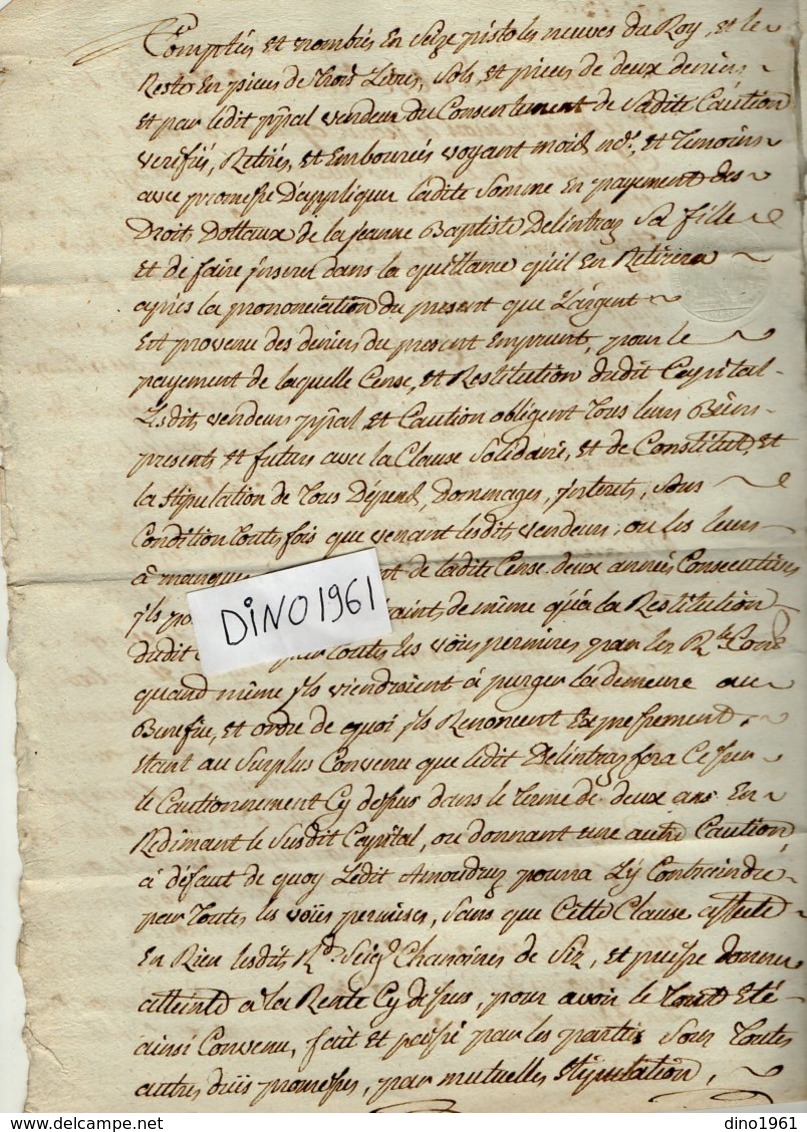 Comptés et nombrés En Seize pistoles neuves du Roy, et le
Reste En pieces de trois Livres, Sols, et pieces de deux deniers
et par ledit pp̄al vendeur du Consentement de Sadite Caution
verifiés, Retirés, et Emboursés voyant moid. not.e, et Temoins
avec promesse D'appliquer ladite Somme En payement des
Droits Dottaux de la Jeanne Baptiste Delintraz Sa fille
Et de faire jnserer dans la quittance qu'il En Retirera
après la prononciation du present que L'argent
Est provenu des deniers du present Emprunt, pour le
payement de laquelle Cense, et Restitution dudit Capital
Lesdits vendeurs pp̄al et Caution obligent Tous leurs Biens
presents et futurs avec la Clause Solidaire, et de Constitut, et
la stipulation de Tous Dépens, Dommages, jnterets, sous
Condition Toutefois que venant lesdits vendeurs, ou les leurs
à manquer de ladite Cense deux années Consecutives
jls de même qu'à la Restitution
dudit par toutes les voïes permises par les
quand même jls viendraient à purger la demeure au
Benefice, et ordre de quoi jls Renoncent Expressement,
Etant au Surplus Convenu que ledit Delintraz fera Cesser
le Cautionnement Cy dessus dans le Terme de deux ans En
Redimant le Susdit Capital, ou donnant une autre Caution,
à défaut de quoy Ledit Amoudruz pourra L'y Contraindre
par Toutes les voïes permises, sans que Cette Clause affecte
En Rien lesdits R.ds Seig.rs Chanoines de Siz, et puisse donner
atteinte à la Rente Cy dessus, pour avoir le Tout Eté
ainsi Convenu, fait et passé par les parties Sous Toutes
autres düës promesses, par mutuelles Stipulation,
DINO1961
dino1961